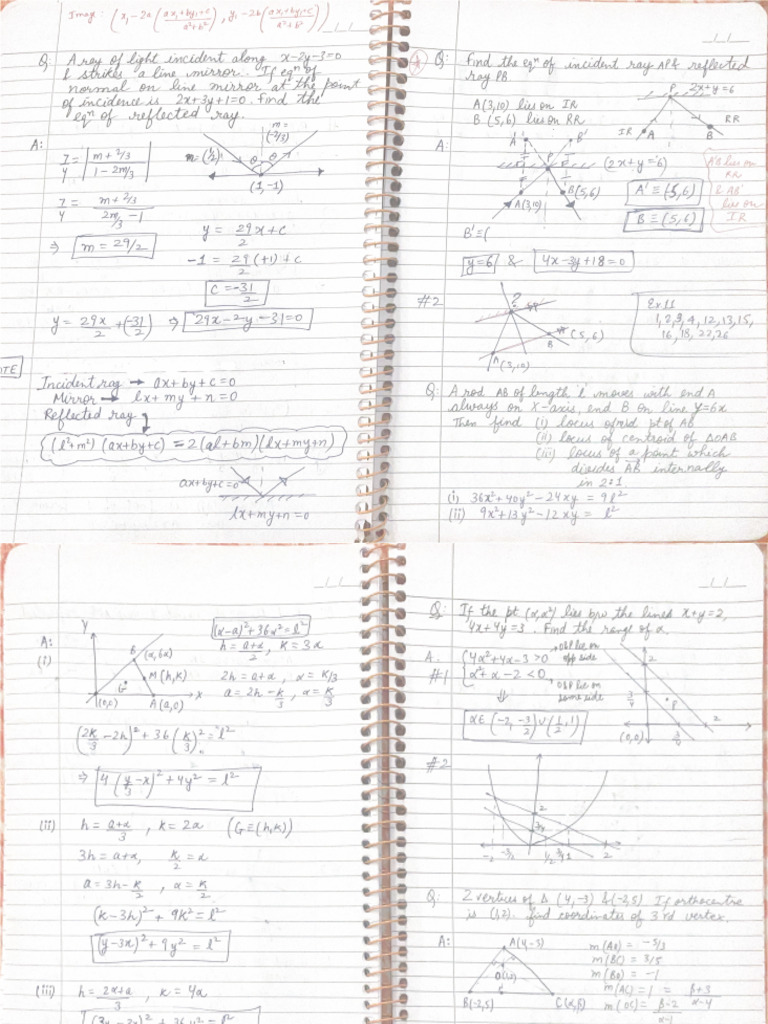 Image: (x₁-2a(ax₁+by₁+c/a²+b²), y₁-2b(ax₁+by₁+c/a²+b²))
Q: A ray of light incident along x-2y-3=0
& strikes a line mirror. If eqⁿ of
normal on line mirror at the point
of incidence is 2x+3y+1=0. Find the
eqⁿ of reflected ray.
A:
7/4 = |m+2/3 / 1-2m/3|
m=(1/2)
m=(-2/3)
θ θ
(1,-1)
7/4 = m+2/3 / 2m/3 -1
⇒ m = 29/2
y = 29x/2 + c
-1 = 29/2 (+1) + c
c = -31/2
y = 29x/2 + (-31/2) ⇒ 29x-2y-31=0
Incident ray → ax+by+c=0
Mirror → lx+my+n=0
Reflected ray
(l²+m²)(ax+by+c) = 2(al+bm)(lx+my+n)
ax+by+c=0
lx+my+n=0
Q: Find the eqⁿ of incident ray AP & reflected
ray PB
A(3,10) lies on IR
B(5,6) lies on RR
P 2x+y=6
IR A B RR
A:
A' B'
P (2x+y=6)
A(3,10) B(5,6)
A'B lies on
RR
& AB'
lies on
IR
A' ≡ (5,6)
B ≡ (5,6)
B' ≡ (
y=6 & 4x-3y+18=0
#2
? B (5,6)
A(3,10)
Ex 11
1,2,3,4,12,13,15,
16,18,22,26
Q: A rod AB of length 'l' moves with end A
always on X-axis, end B on line y=6x
Then find (i) locus of mid pt of AB
(ii) locus of centroid of ΔOAB
(iii) locus of a point which
divides AB internally
in 2:1
(i) 36x²+40y²-24xy = 9l²
(ii) 9x²+13y²-12xy = l²
A:
(i)
Y
B (α,6α)
M(h,k)
G
(0,0) A(a,0) x
(α-a)²+36α²=l²
h = a+α/2, k = 3α
2h = a+α, α = k/3
a = 2h-k/3, α = k/3
(2k/3 -2h)² + 36(k/3)² = l²
⇒ 4(y/3 -x)² + 4y² = l²
(ii) h = a+α/3, k = 2α (G≡(h,k))
3h = a+α, k/2 = α
a = 3h-k/2, α = k/2
(k-3h)² + 9k² = l²
(y-3x)² + 9y² = l²
(iii) h = 2α+a/3, k = 4α
Q: If the pt (α,α²) lies b/w the lines x+y=2,
4x+4y=3. Find the range of α.
A.
#1
4α²+4α-3>0 → O&P lie on
opp side
α²+α-2<0 → O&P lie on
same side
⇓
α∈(-2,-3/2)∪(1/2,1)
2 3/4 P
(0,0) 3/4 2
#2
2
3/4
-2 -3/2 1/2 3/4 1 2
Q: 2 vertices of Δ (4,-3) & (-2,5) If orthocentre
is (1,2). find coordinates of 3rd vertex.
A:
A(4,-3)
O(1,2)
B(-2,5) C(α,β)
m(AO) = -5/3
m(BC) = 3/5
m(BO) = -1
m(AC) = 1 = β+3/α-4
m(OC) = β-2/α-1